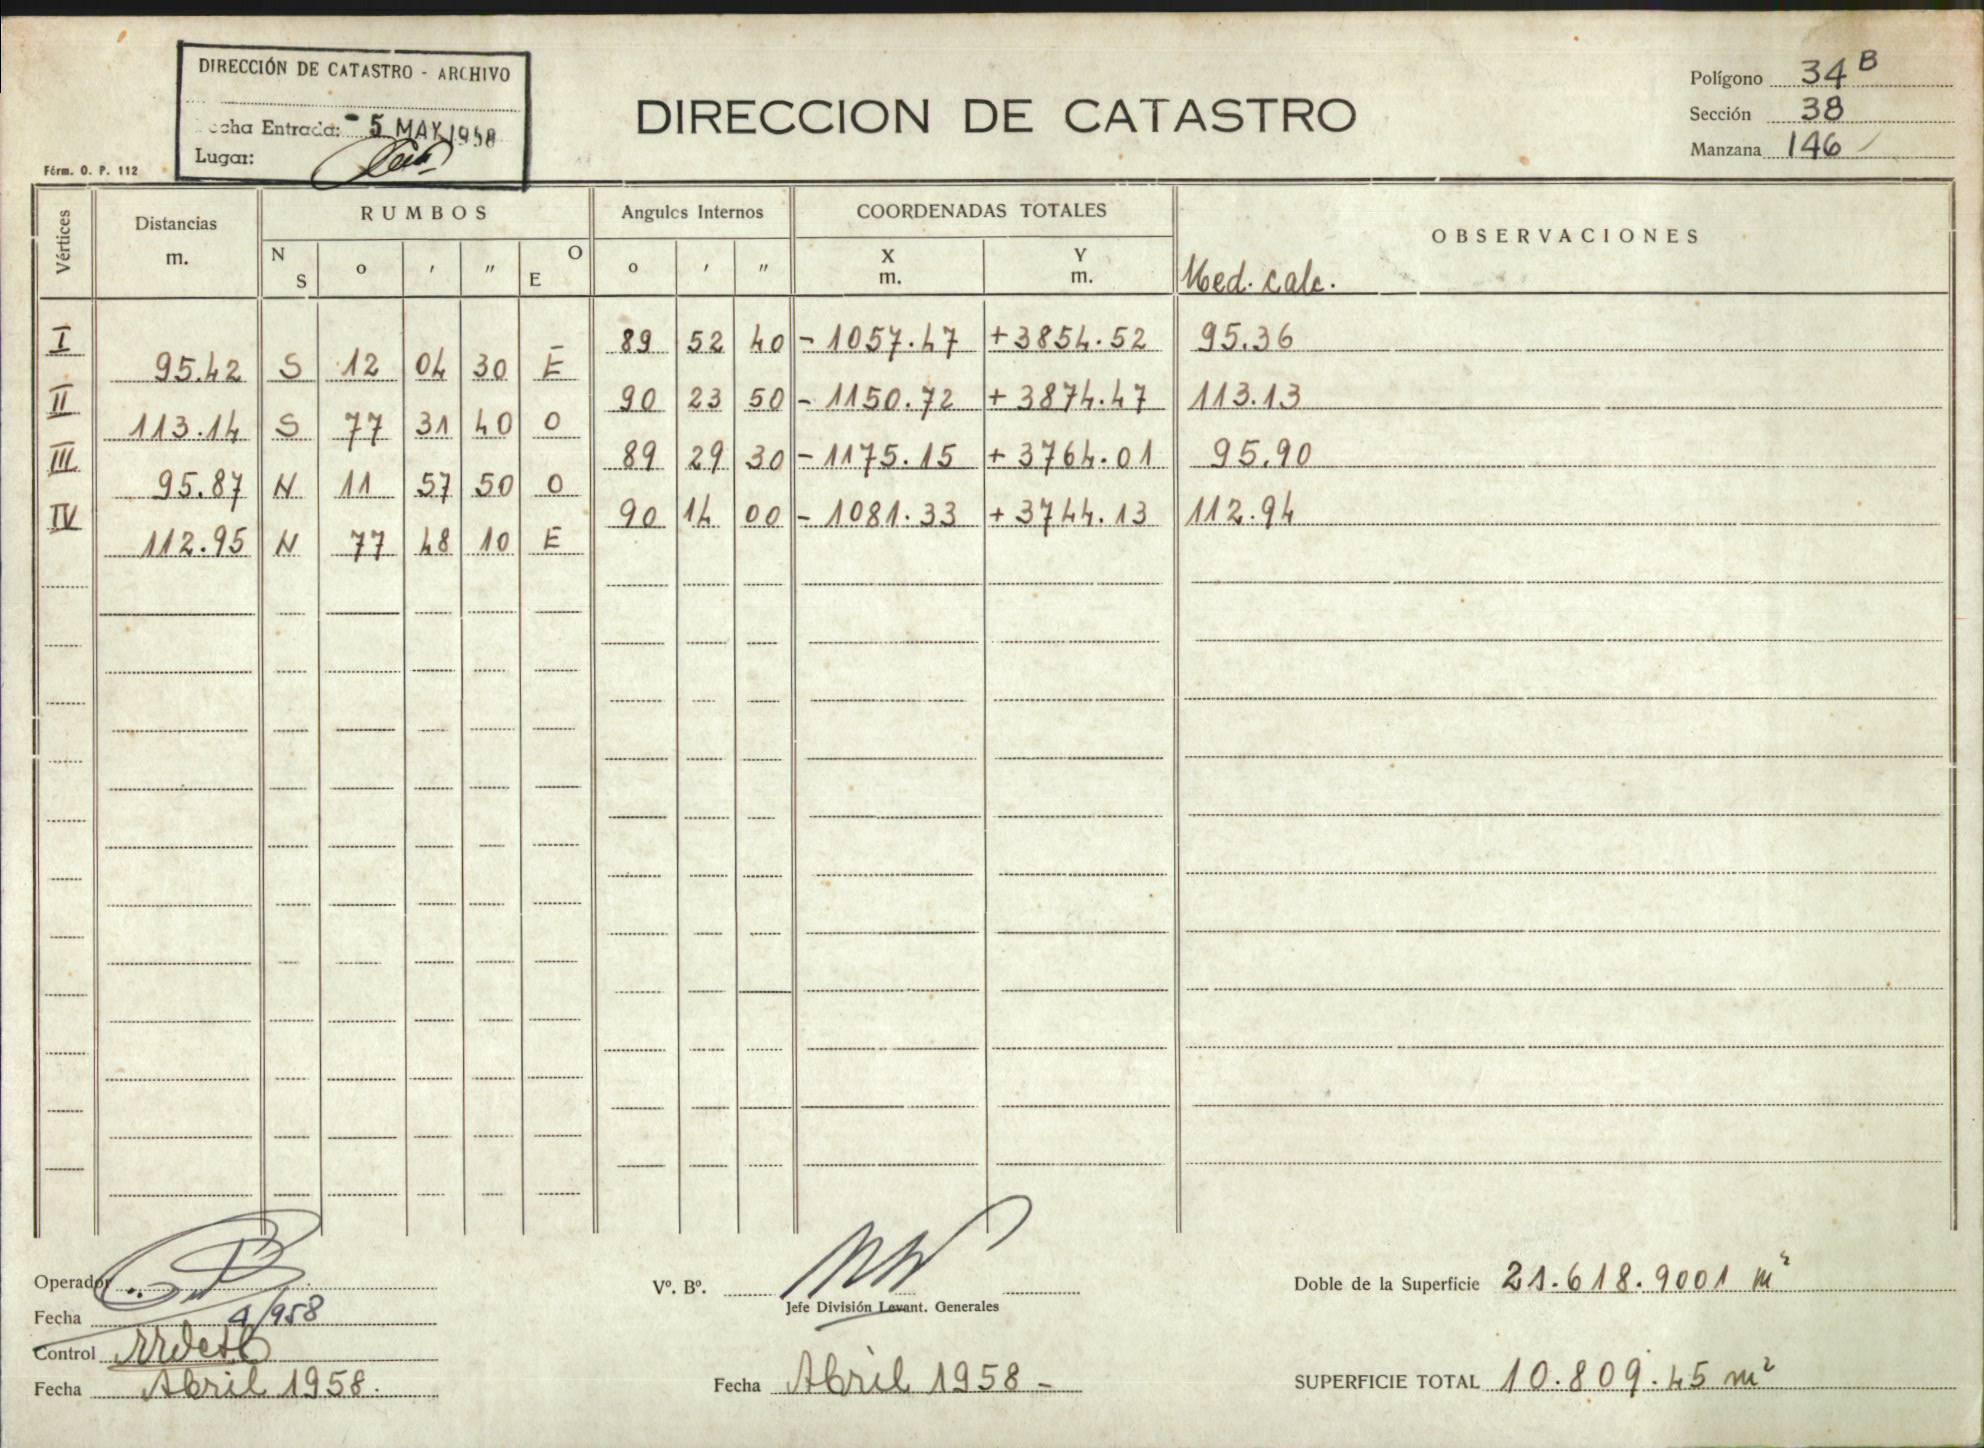 DIRECCIÓN DE CATASTRO - ARCHIVO
Entrada: - 5 MAY 1958
Lugar:
Fórm. O. P. 112
DIRECCION DE CATASTRO
Polígono 34 B
Sección 38
Manzana 146
Vértices Distancias m. RUMBOS Angulos Internos COORDENADAS TOTALES OBSERVACIONES
N S o ' " O E o ' " X m. Y m. Med. calc.
I 89 52 40 - 1057.47 + 3854.52 95.36
95.42 S 12 04 30 E
II 90 23 50 - 1150.72 + 3874.47 113.13
113.14 S 77 31 40 O
III 89 29 30 - 1175.15 + 3764.01 95.90
95.87 N 11 57 50 O
IV 90 14 00 - 1081.33 + 3744.13 112.94
112.95 N 77 48 10 E
Operador
Fecha 4/958
Control
Fecha Abril 1958.
Vº. Bº.
Jefe División Levant. Generales
Fecha Abril 1958 -
Doble de la Superficie 21.618.9001 m²
SUPERFICIE TOTAL 10.809.45 m²